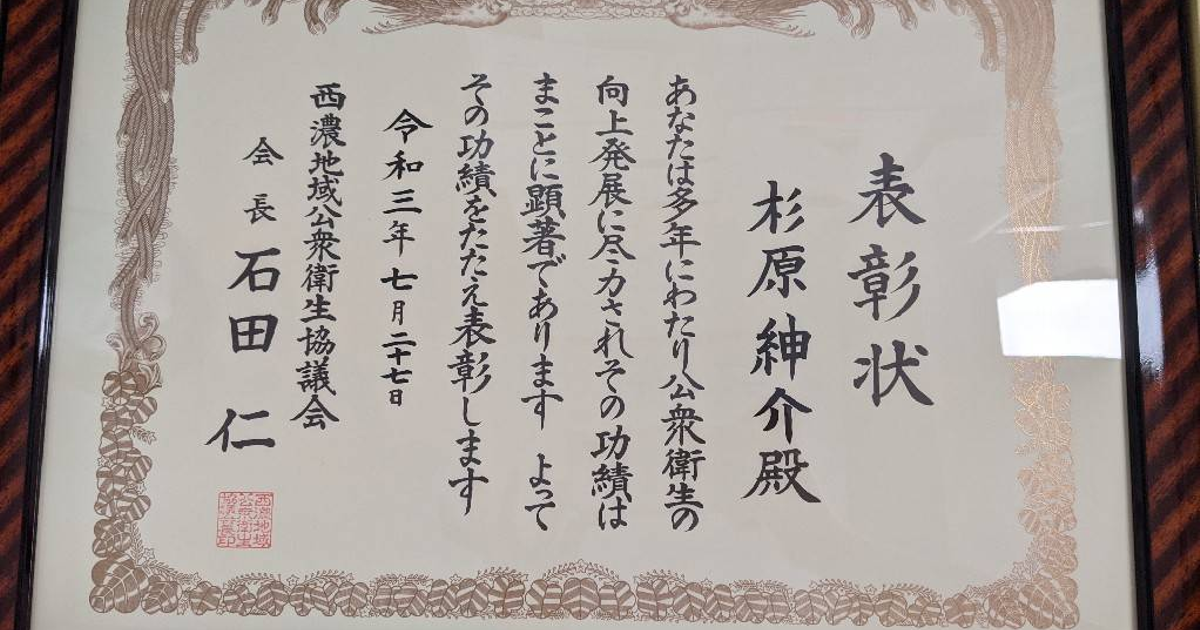 表彰状
杉原紳介殿
あなたは多年にわたり公衆衛生の
向上発展に尽力されその功績は
まことに顕著であります よって
その功績をたたえ表彰します
令和三年七月二十七日
西濃地域公衆衛生協議会
会長 石田 仁
西濃地域
公衆衛生
協議会印